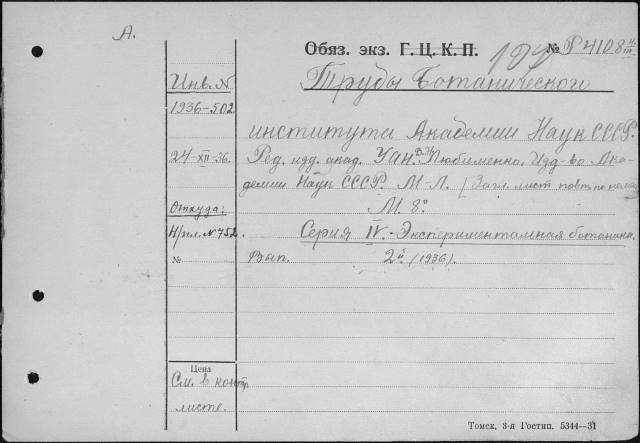 А.
Обяз. экз. Г. Ц. К. П.
№ Р 4108
Труды Ботанического
Инв. N
1936-502
института Академии Наук СССР.
24-XII-36.
Ред. изд. акад. Любименко. Изд-во Ака-
демии Наук СССР. М-Л. [Загл. лист
Откуда:
М. 8°
Н/пл. № 752.
Серия IV.-Экспериментальная ботаника.
№
Вып. 2й (1936).
Цена
См. в контр.
листе.
Томск, 3-я Гостип. 5344—31